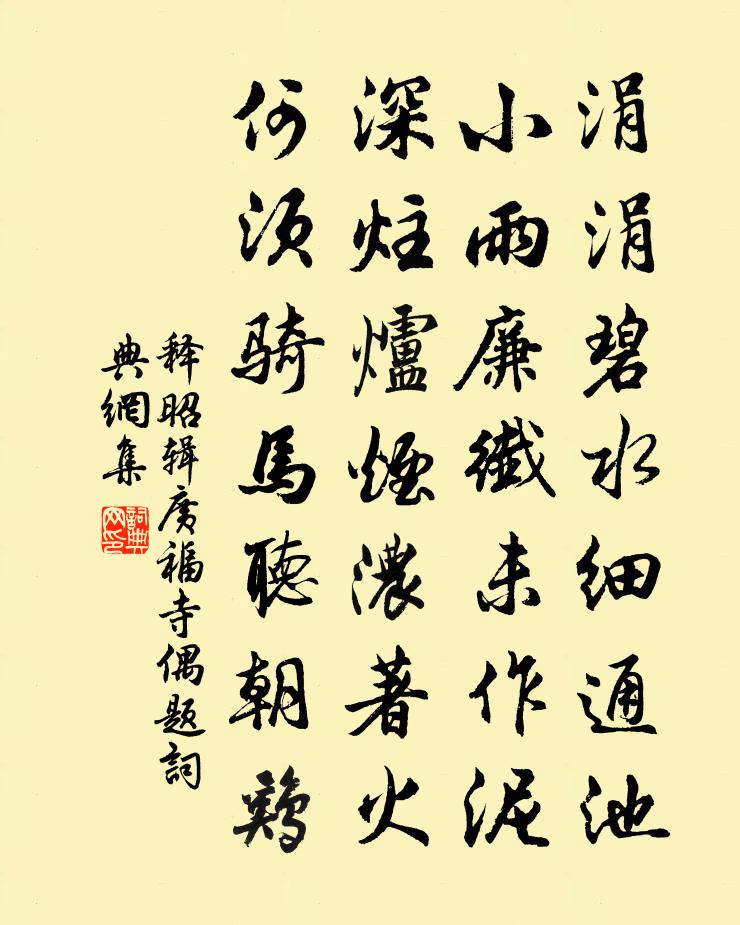 涓涓碧水细通池
小雨廉纖未作泥
深炷爐煙濃著火
何须骑馬聽朝鷄
释昭辑廣福寺偶题詞
典網集
詞典
网印